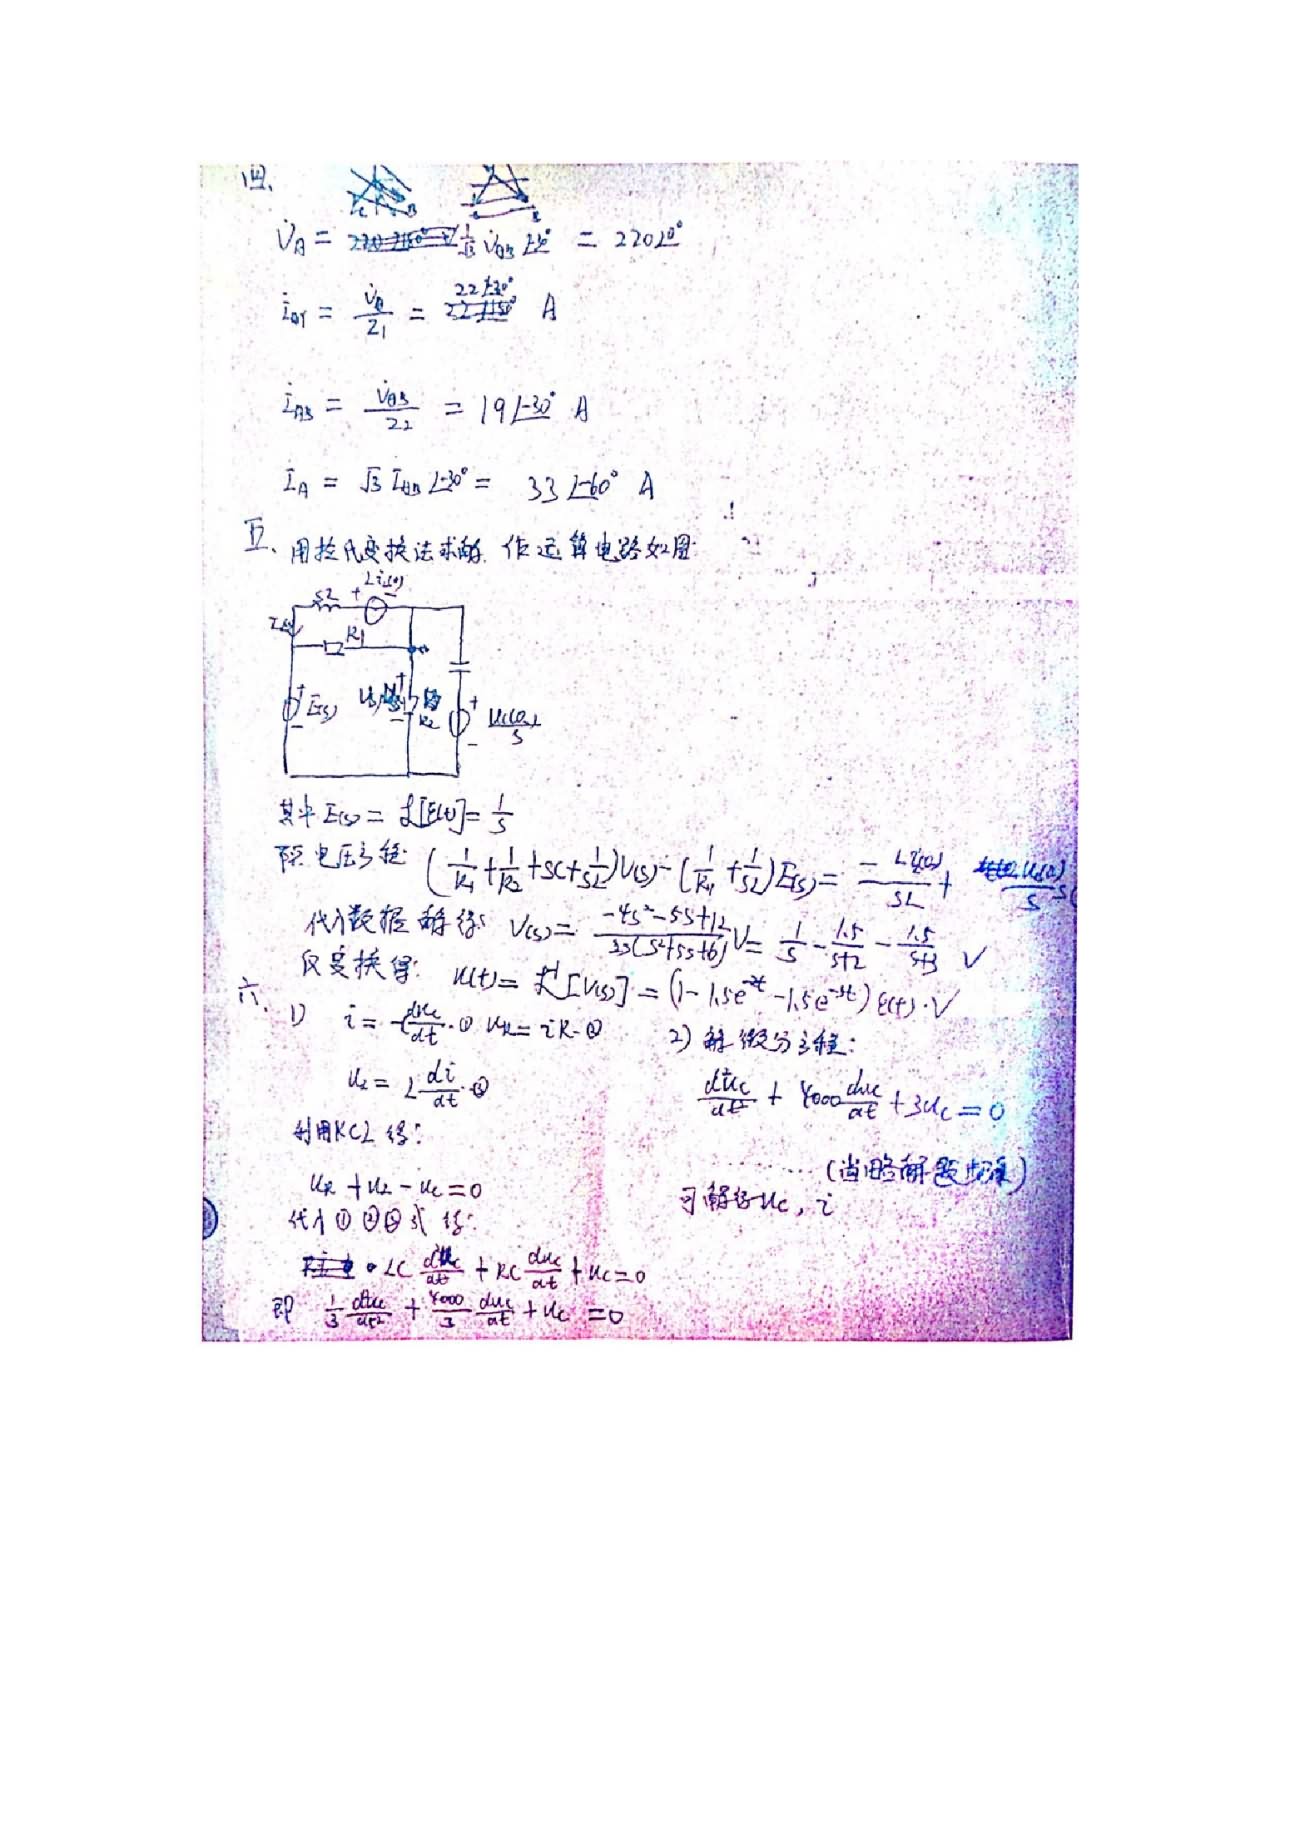 四、
V̇A = 1/√3 V̇AB ∠30° = 220∠0°
İAY = V̇A/Z1 = 22∠-30° A
İAB = V̇AB/Z2 = 19∠-30° A
İA = √3 İAB∠-30° = 33∠-60° A
五、用拉氏变换法求解. 作运算电路如图:
SL + Li(0) -
R1
+ E(s) -
R2
+ uc(0-)/S -
其中E(s) = ℒ[E(t)] = 1/S
电压方程: (1/R1 + 1/R2 + SC + 1/SL)V(s) - (1/R1 + 1/SL)E(s) = -Li(0)/SL + uc(0)/S SC
代入数据解得: V(s) = (-4s²-5s+12)/(2s(s²+5s+6)) V = 1/S - 1.5/(S+2) - 1.5/(S+3) V
反变换得: u(t) = ℒ⁻¹[V(s)] = (1 - 1.5e^-2t - 1.5e^-3t) ε(t)·V
六、1) i = -C duc/dt ·① uR = iR·②
uL = L di/dt ·③
利用KCL得:
uR + uL - uc = 0
代入①②③式得:
LC d²uc/dt + RC duc/dt + uc = 0
即 1/3 d²uc/dt² + 4000/3 duc/dt + uc = 0
2) 解微分方程:
d²uc/dt² + 4000 duc/dt + 3uc = 0
········(省略解题步骤)
可解得uc, i